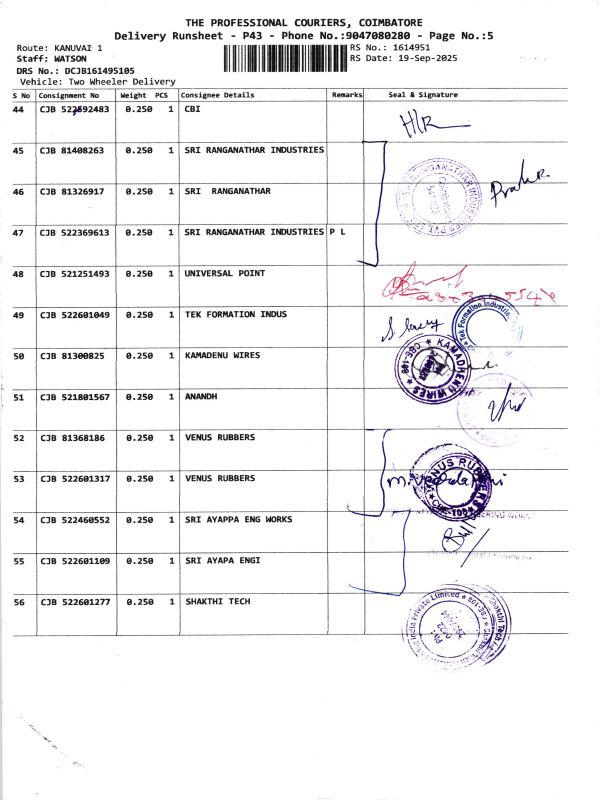 THE PROFESSIONAL COURIERS, COIMBATORE
Delivery Runsheet - P43 - Phone No.:9047080280 - Page No.:5
Route: KANUVAI 1 RS No.: 1614951
Staff: WATSON RS Date: 19-Sep-2025
DRS No.: DCJB161495105
Vehicle: Two Wheeler Delivery
S No Consignment No Weight PCS Consignee Details Remarks Seal & Signature
44 CJB 522592483 0.250 1 CBI
45 CJB 81408263 0.250 1 SRI RANGANATHAR INDUSTRIES
46 CJB 81326917 0.250 1 SRI RANGANATHAR
47 CJB 522369613 0.250 1 SRI RANGANATHAR INDUSTRIES P L
48 CJB 521251493 0.250 1 UNIVERSAL POINT
49 CJB 522601049 0.250 1 TEK FORMATION INDUS
50 CJB 81300825 0.250 1 KAMADENU WIRES
KAMADHENU WIRES
51 CJB 521801567 0.250 1 ANANDH
52 CJB 81368186 0.250 1 VENUS RUBBERS
53 CJB 522601317 0.250 1 VENUS RUBBERS
VENUS RUBBERS
54 CJB 522460552 0.250 1 SRI AYAPPA ENG WORKS
55 CJB 522601109 0.250 1 SRI AYAPA ENGI
56 CJB 522601277 0.250 1 SHAKTHI TECH